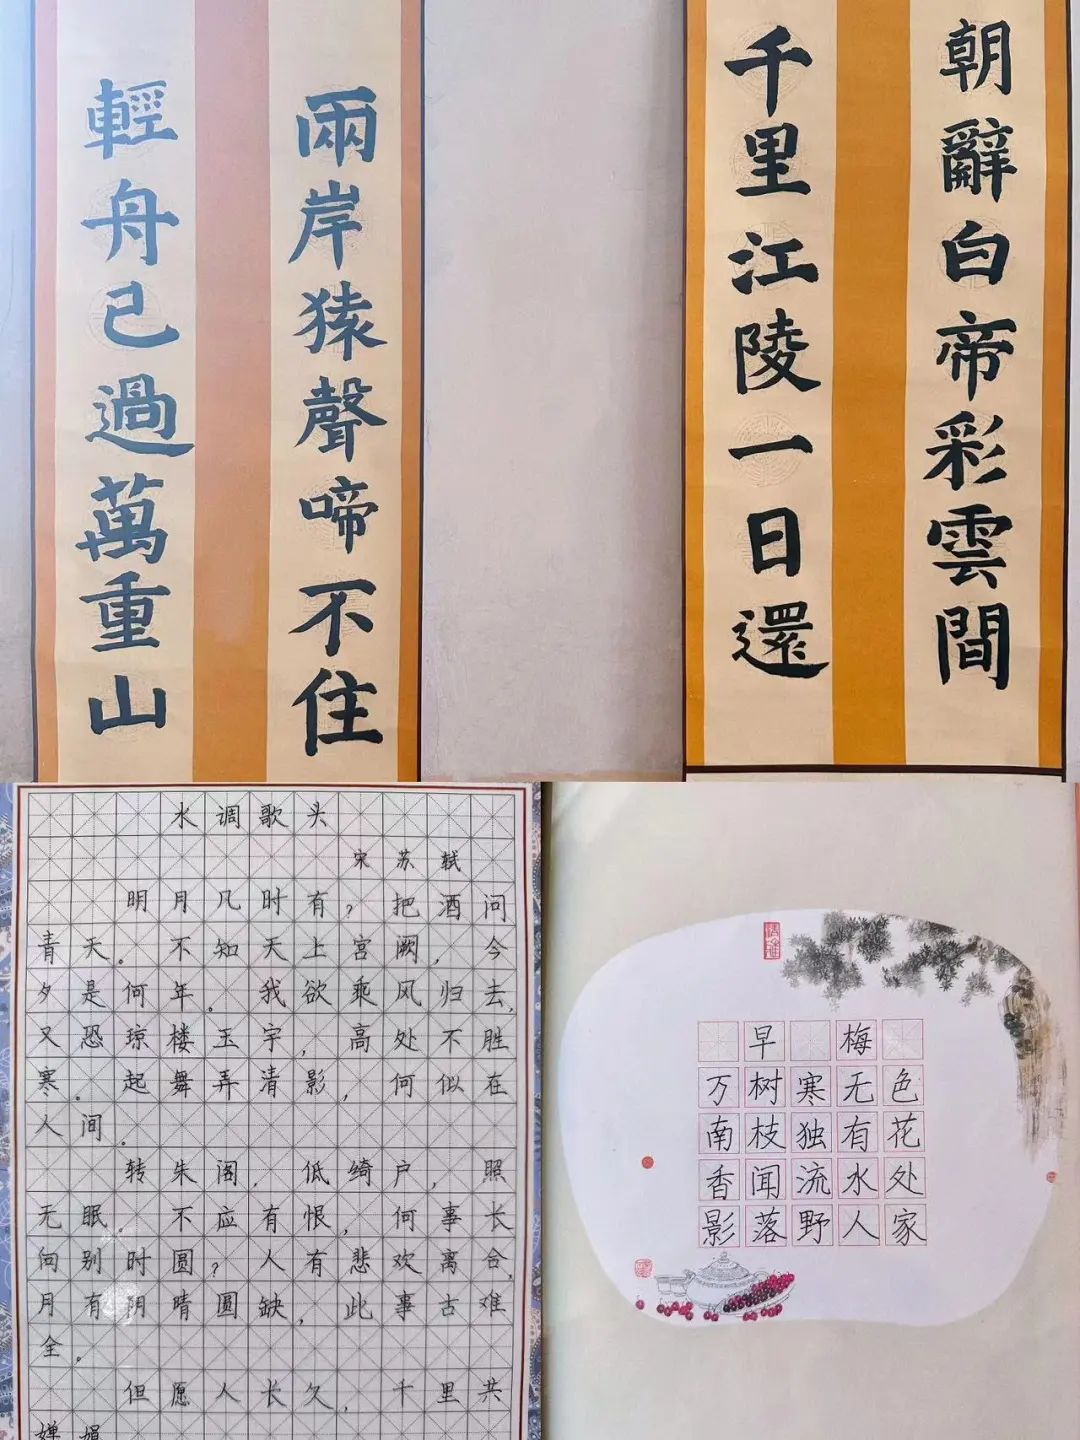 朝辭白帝彩雲間
千里江陵一日還
兩岸猿聲啼不住
輕舟已過萬重山
水调歌头
宋苏轼
明月几时有？把酒问
青天。不知天上宫阙，今
夕是何年。我欲乘风归去，
又恐琼楼玉宇，高处不胜
寒。起舞弄清影，何似在
人间。
转朱阁，低绮户，照
无眠。不应有恨，何事长
向别时圆？人有悲欢离合，
月有阴晴圆缺，此事古难
全。
但愿人长久，千里共
婵娟
早梅
万树寒无色
南枝独有花
香闻流水处
影落野人家